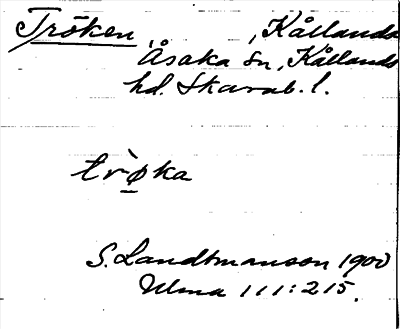 Tröken, , Kållands
Åsaka sn, Kållands
hd. Skarab. l.
trø̀ka
S. Landtmanson 1900
Ulma 111:215.